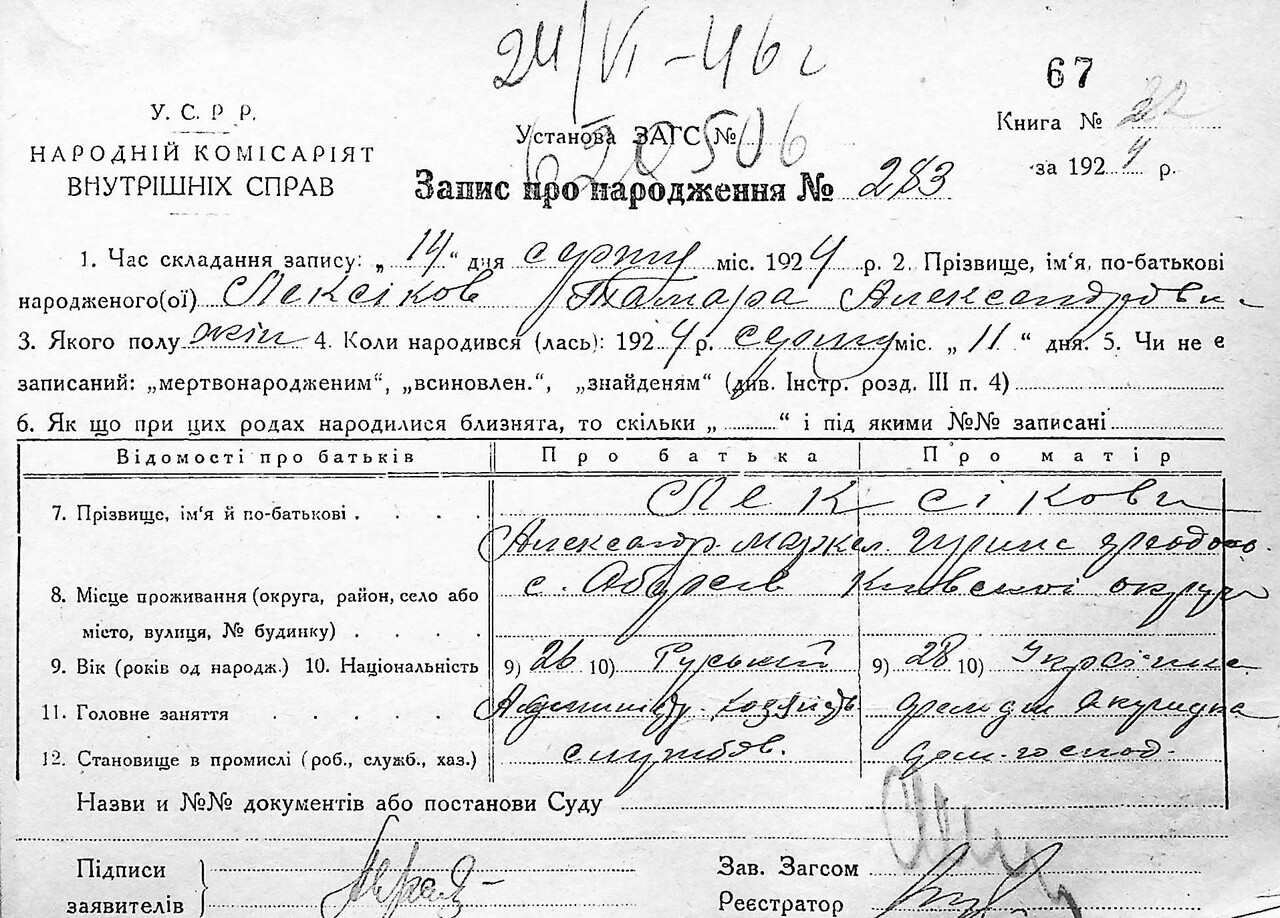 24/VI-46 г
67
У. С. Р Р.
Установа ЗАГС №
620506
Книга № 22
НАРОДНІЙ КОМІСАРІЯТ
ВНУТРІШНІХ СПРАВ
за 1924 р.
Запис про народження № 283
1. Час складання запису: „14“ дня серпня міс. 1924 р. 2. Прізвище, ім‘я, по-батькові
народженого(ої) Лексіков Тамара Александровн
3. Якого полу жін 4. Коли народився (лась): 1924 р. серпня міс. „11“ дня. 5. Чи не є
записаний: „мертвонародженим“, „всиновлен.“, „знайденям“ (див. Інстр. розд. III п. 4)
6. Як що при цих родах народилися близнята, то скільки „ “ і під якими №№ записані
Відомості про батьків Про батька Про матір
7. Прізвище, ім‘я й по-батькові . . . . Лексікови
Александр
8. Місце проживання (округа, район, село або с. Київської округи
місто, вулиця, № будинку) . . . .
9. Вік (років од народж.) 10. Національність 9) 26 10) Руський 9) 28 10) Українка
11. Головне заняття . . . . .
12. Становище в промислі (роб., служб., хаз.) службов. дом. господ.
Назви и №№ документів або постанови Суду
Підписи
заявителів
Зав. Загсом
Реєстратор